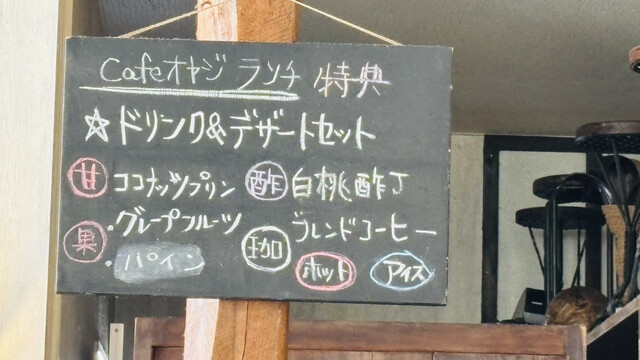 Cafeオヤジ ランチ 特典
☆ドリンク&デザートセット
甘 ココナッツプリン
酢 白桃酢丁
果 ・グレープフルーツ
・パイン
珈 ブレンドコーヒー
ホット アイス